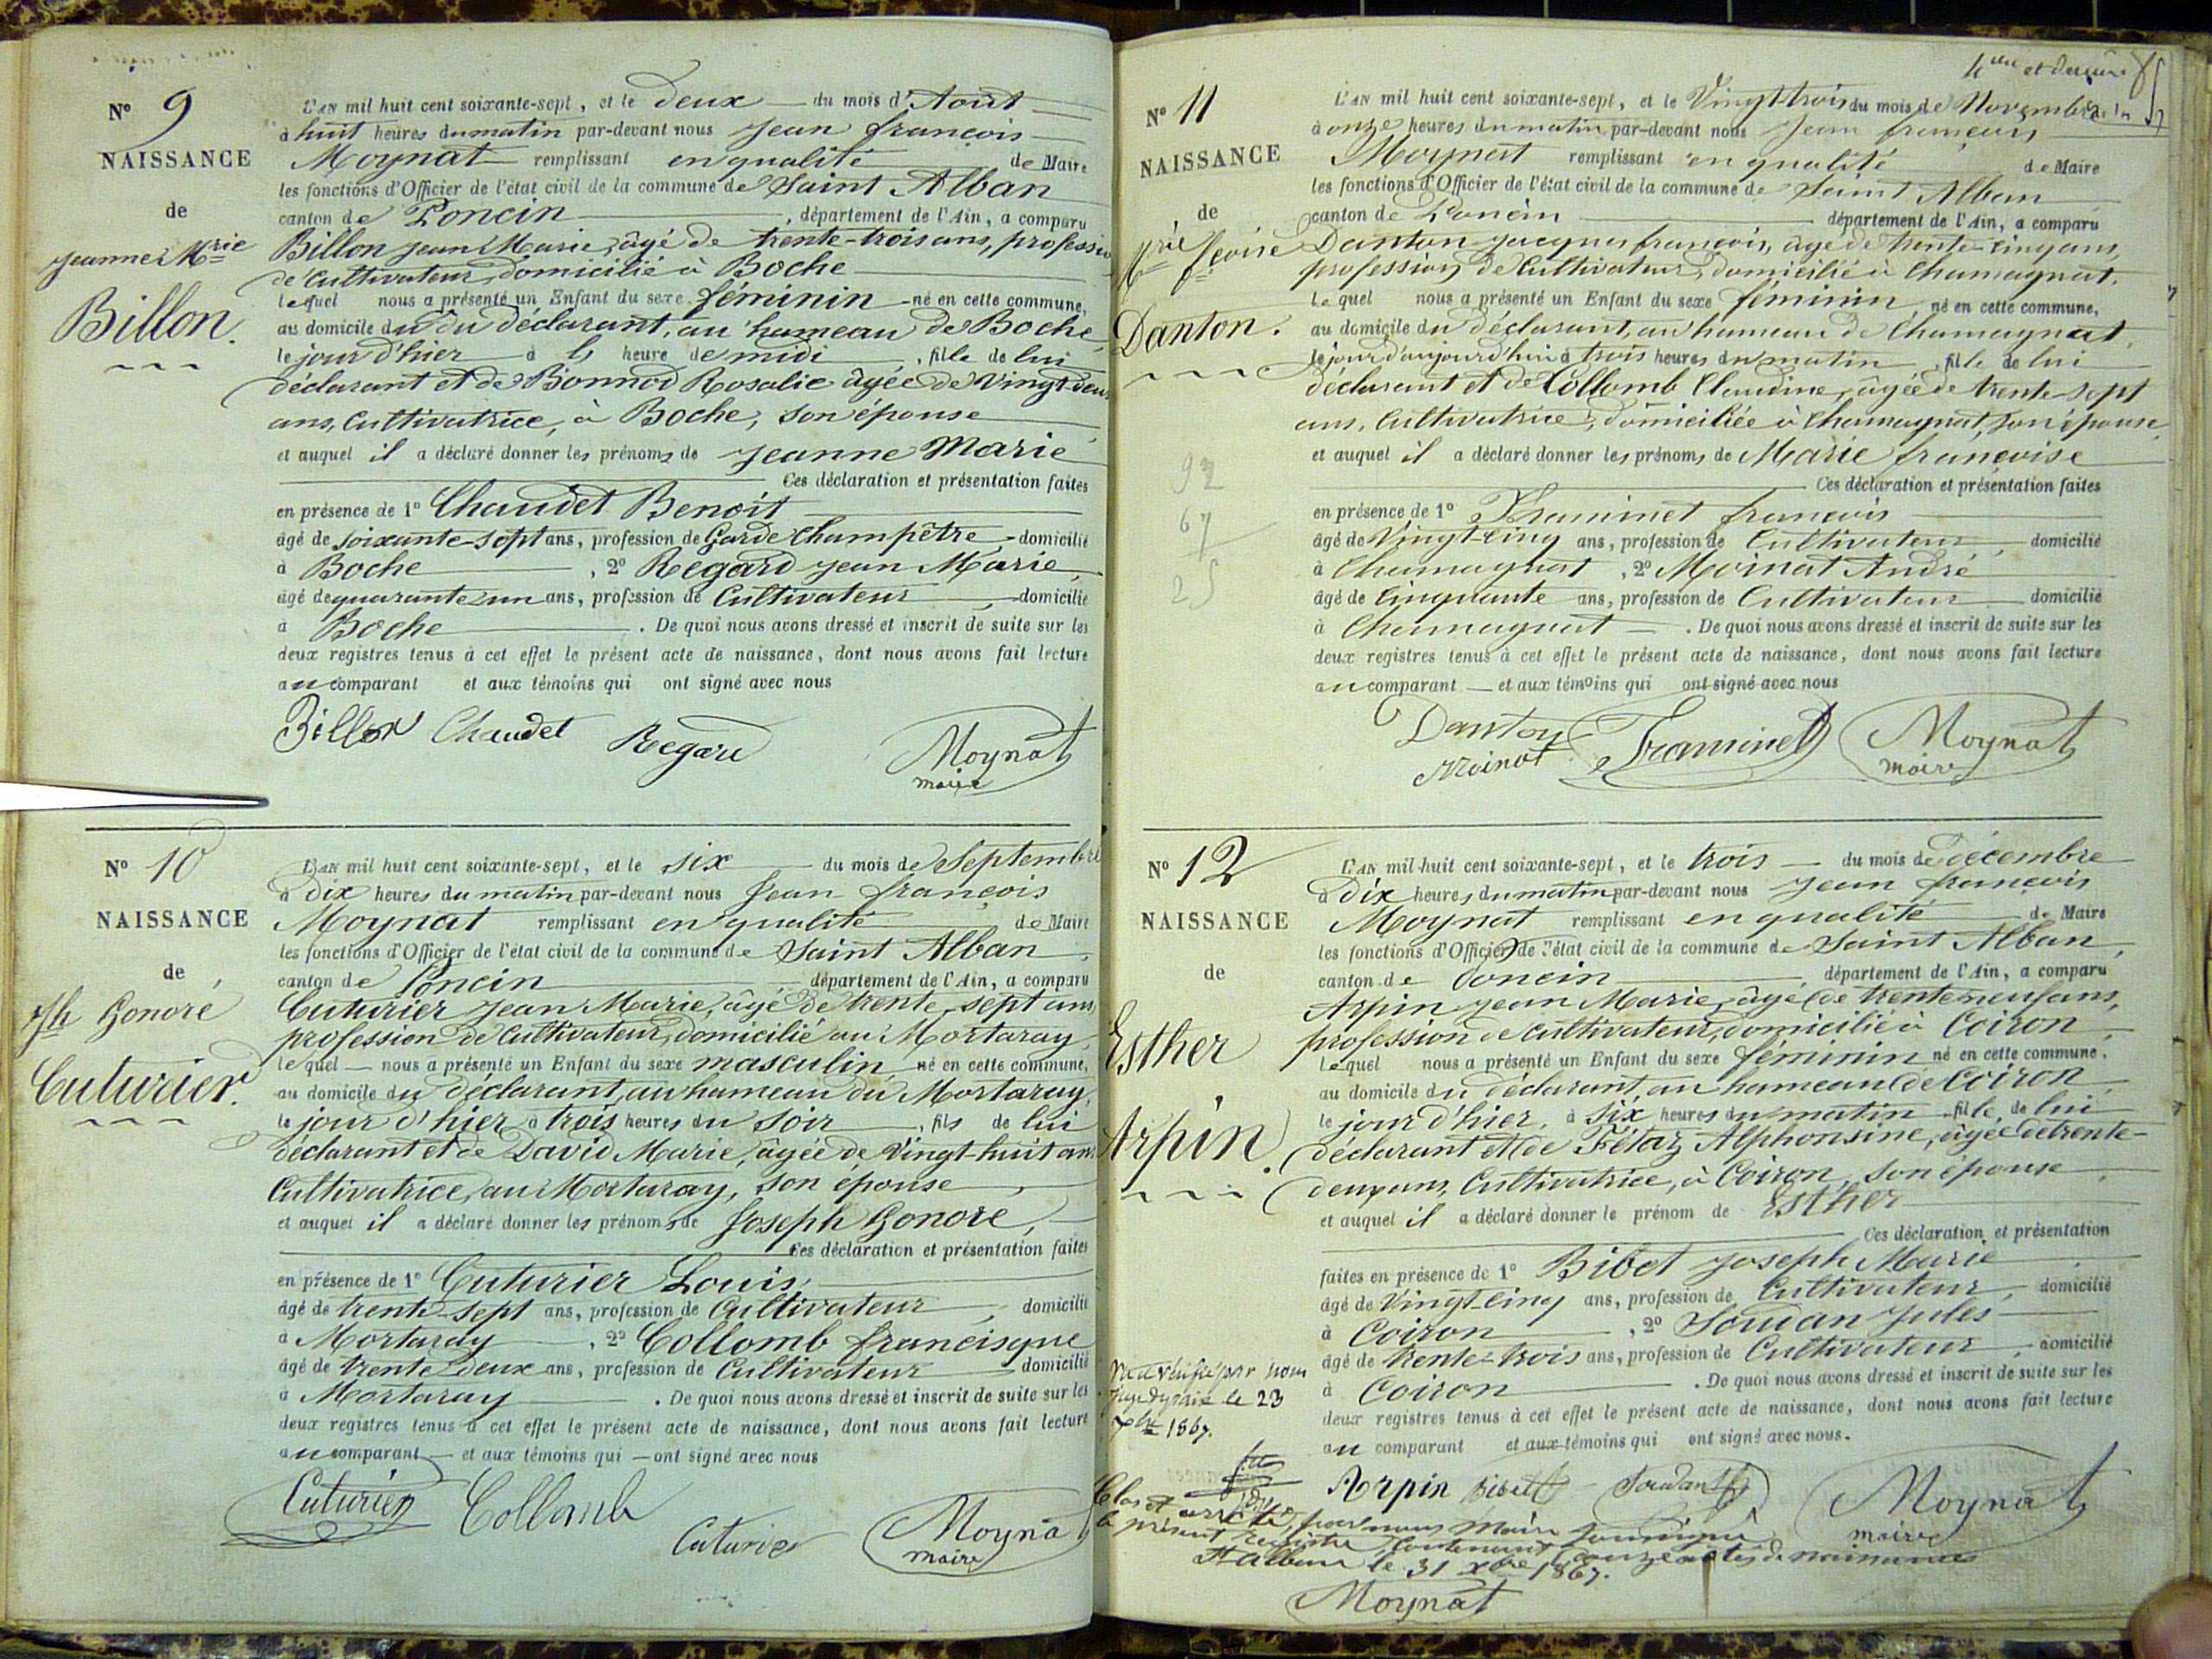 N° 9
NAISSANCE
de
Jeanne Mrie
Billon.
L'AN mil huit cent soixante-sept, et le deux du mois d'Août
à huit heures du matin par-devant nous Jean françois
Moynat remplissant en qualité de Maire
les fonctions d'Officier de l'état civil de la commune de Saint Alban
canton de Poncin, département de l'Ain, a comparu
Billon Jean Marie, âgé de trente-trois ans, profession
de Cultivateur, domicilié à Boche
lequel nous a présenté un Enfant du sexe féminin né en cette commune,
au domicile du du déclarant, au hameau de Boche
le jour d'hier à l heure de midi, fille de lui
déclarant et de Bonnod Rosalie âgée de Vingt-deux
ans, Cultivatrice, à Boche, son épouse
et auquel il a déclaré donner les prénoms de Jeanne Marie
Ces déclaration et présentation faites
en présence de 1° Chaudet Benoit
âgé de soixante-sept ans, profession de Garde Champêtre, domicilié
à Boche, 2° Regard Jean Marie,
âgé de quarante-un ans, profession de Cultivateur, domicilié
à Boche. De quoi nous avons dressé et inscrit de suite sur les
deux registres tenus à cet effet le présent acte de naissance, dont nous avons fait lecture
au comparant et aux témoins qui ont signé avec nous
Billon Chaudet Regard Moynat
maire
N° 10
NAISSANCE
de
Jh Honoré
Cuturier.
L'AN mil huit cent soixante-sept, et le six du mois de Septembre
à Dix heures du matin par-devant nous Jean françois
Moynat remplissant en qualité de Maire
les fonctions d'Officier de l'état civil de la commune de Saint Alban,
canton de Poncin département de l'Ain, a comparu
Cuturier Jean Marie, âgé de trente-sept ans
profession de Cultivateur, domicilié au Mortaray,
lequel nous a présenté un Enfant du sexe masculin, né en cette commune,
au domicile du déclarant, au hameau du Mortaray,
le jour d'hier à trois heures du soir, fils de lui
déclarant et de David Marie, âgée de Vingt-huit ans
Cultivatrice, au Mortaray, son épouse,
et auquel il a déclaré donner les prénoms de Joseph Honoré,
Ces déclaration et présentation faites
en présence de 1° Cuturier Louis,
âgé de trente-sept ans, profession de Cultivateur, domicilié
à Mortaray, 2° Collomb francisque
âgé de trente-deux ans, profession de Cultivateur domicilié
à Mortaray. De quoi nous avons dressé et inscrit de suite sur les
deux registres tenus à cet effet le présent acte de naissance, dont nous avons fait lecture
au comparant et aux témoins qui ont signé avec nous
Cuturier Collomb Cuturier Moynat
maire
4me et dernière
N° 11
NAISSANCE
de
Mrie fçoise
Danton.
L'AN mil huit cent soixante-sept, et le Vingt-trois du mois de Novembre
à onze heures du matin par-devant nous Jean françois
Moynat remplissant en qualité de Maire
les fonctions d'Officier de l'état civil de la commune de Saint Alban
canton de Poncin département de l'Ain, a comparu
Danton Jacques françois, âgé de trente-cinq ans,
profession de Cultivateur, domicilié à Chamagnat.
Lequel nous a présenté un Enfant du sexe féminin né en cette commune,
au domicile du déclarant, au hameau de Chamagnat,
le jour d'aujourd'hui à trois heures du matin, fille de lui
déclarant et de Collomb Claudine, âgée de trente-sept
ans, Cultivatrice, domiciliée à Chamagnat, son épouse,
et auquel il a déclaré donner les prénoms de Marie françoise
Ces déclaration et présentation faites
en présence de 1° Framinet françois
âgé de Vingt-cinq ans, profession de Cultivateur, domicilié
à Chamagnat, 2° Moinat André
âgé de Cinquante ans, profession de Cultivateur domicilié
à Chamagnat. De quoi nous avons dressé et inscrit de suite sur les
deux registres tenus à cet effet le présent acte de naissance, dont nous avons fait lecture
au comparant et aux témoins qui ont signé avec nous
92
67
25
Danton Framinet Moynat
Moinat maire
N° 12
NAISSANCE
de
Esther
Arpin.
L'AN mil huit cent soixante-sept, et le trois du mois de décembre
à Dix heures du matin par-devant nous Jean françois
Moynat remplissant en qualité de Maire
les fonctions d'Officier de l'état civil de la commune de Saint Alban,
canton de Poncin département de l'Ain, a comparu
Arpin Jean Marie, âgé de trente-neuf ans,
profession de cultivateur, domicilié à Coiron
Lequel nous a présenté un Enfant du sexe féminin né en cette commune,
au domicile du déclarant, au hameau de Coiron
le jour d'hier, à six heures du matin fille de lui
déclarant et de Fétaz Alphonsine, âgée de trente-
deux ans, Cultivatrice, à Coiron, son épouse
et auquel il a déclaré donner le prénom de Esther
Ces déclaration et présentation
faites en présence de 1° Bibet Joseph Marie
âgé de Vingt-cinq ans, profession de Cultivateur, domicilié
à Coiron, 2° Soudan Jules
âgé de trente-trois ans, profession de Cultivateur, domicilié
à Coiron. De quoi nous avons dressé et inscrit de suite sur les
deux registres tenus à cet effet le présent acte de naissance, dont nous avons fait lecture
au comparant et aux témoins qui ont signé avec nous.
Vu et vérifié par nous
Juge de paix le 23
xbre 1867.
Arpin Bibet Soudan Moynat
maire
Clos et arrêté par nous Maire soussigné
le présent registre contenant douze actes de naissances
St Alban le 31 xbre 1867.
Moynat